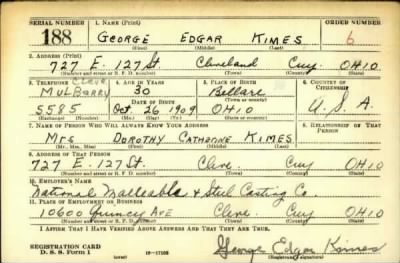 SERIAL NUMBER 1. NAME (Print) ORDER NUMBER
188 GEORGE EDGAR KIMES 6
(First) (Middle) (Last)
2. ADDRESS (Print)
727 E. 127 St. Cleveland Cuy. OHIO
(Number and street or R. F. D. number) (Town) (County) (State)
3. TELEPHONE 4. AGE IN YEARS 5. PLACE OF BIRTH 6. COUNTRY OF CITIZENSHIP
Cleve. MULBERRY 30 Bellare
DATE OF BIRTH (Town or county)
5585 Oct 26 1909 OHIO U.S.A.
(Exchange) (Number) (Mo.) (Day) (Yr.) (State or country)
7. NAME OF PERSON WHO WILL ALWAYS KNOW YOUR ADDRESS 8. RELATIONSHIP OF THAT PERSON
MRS DOROTHY CATHERINE KIMES
(Mr., Mrs., Miss) (First) (Middle) (Last)
9. ADDRESS OF THAT PERSON
727 E. 127 St. Cleve. Cuy OHIO
(Number and street or R. F. D. number) (Town) (County) (State)
10. EMPLOYER'S NAME
National Malleable & Steel Casting Co.
11. PLACE OF EMPLOYMENT OR BUSINESS
10600 Quincy Ave Cleve. Cuy. OHIO
(Number and street or R. F. D. number) (Town) (County) (State)
I AFFIRM THAT I HAVE VERIFIED ABOVE ANSWERS AND THAT THEY ARE TRUE.
REGISTRATION CARD
D. S. S. Form 1 George Edgar Kimes
(Registrant's signature)